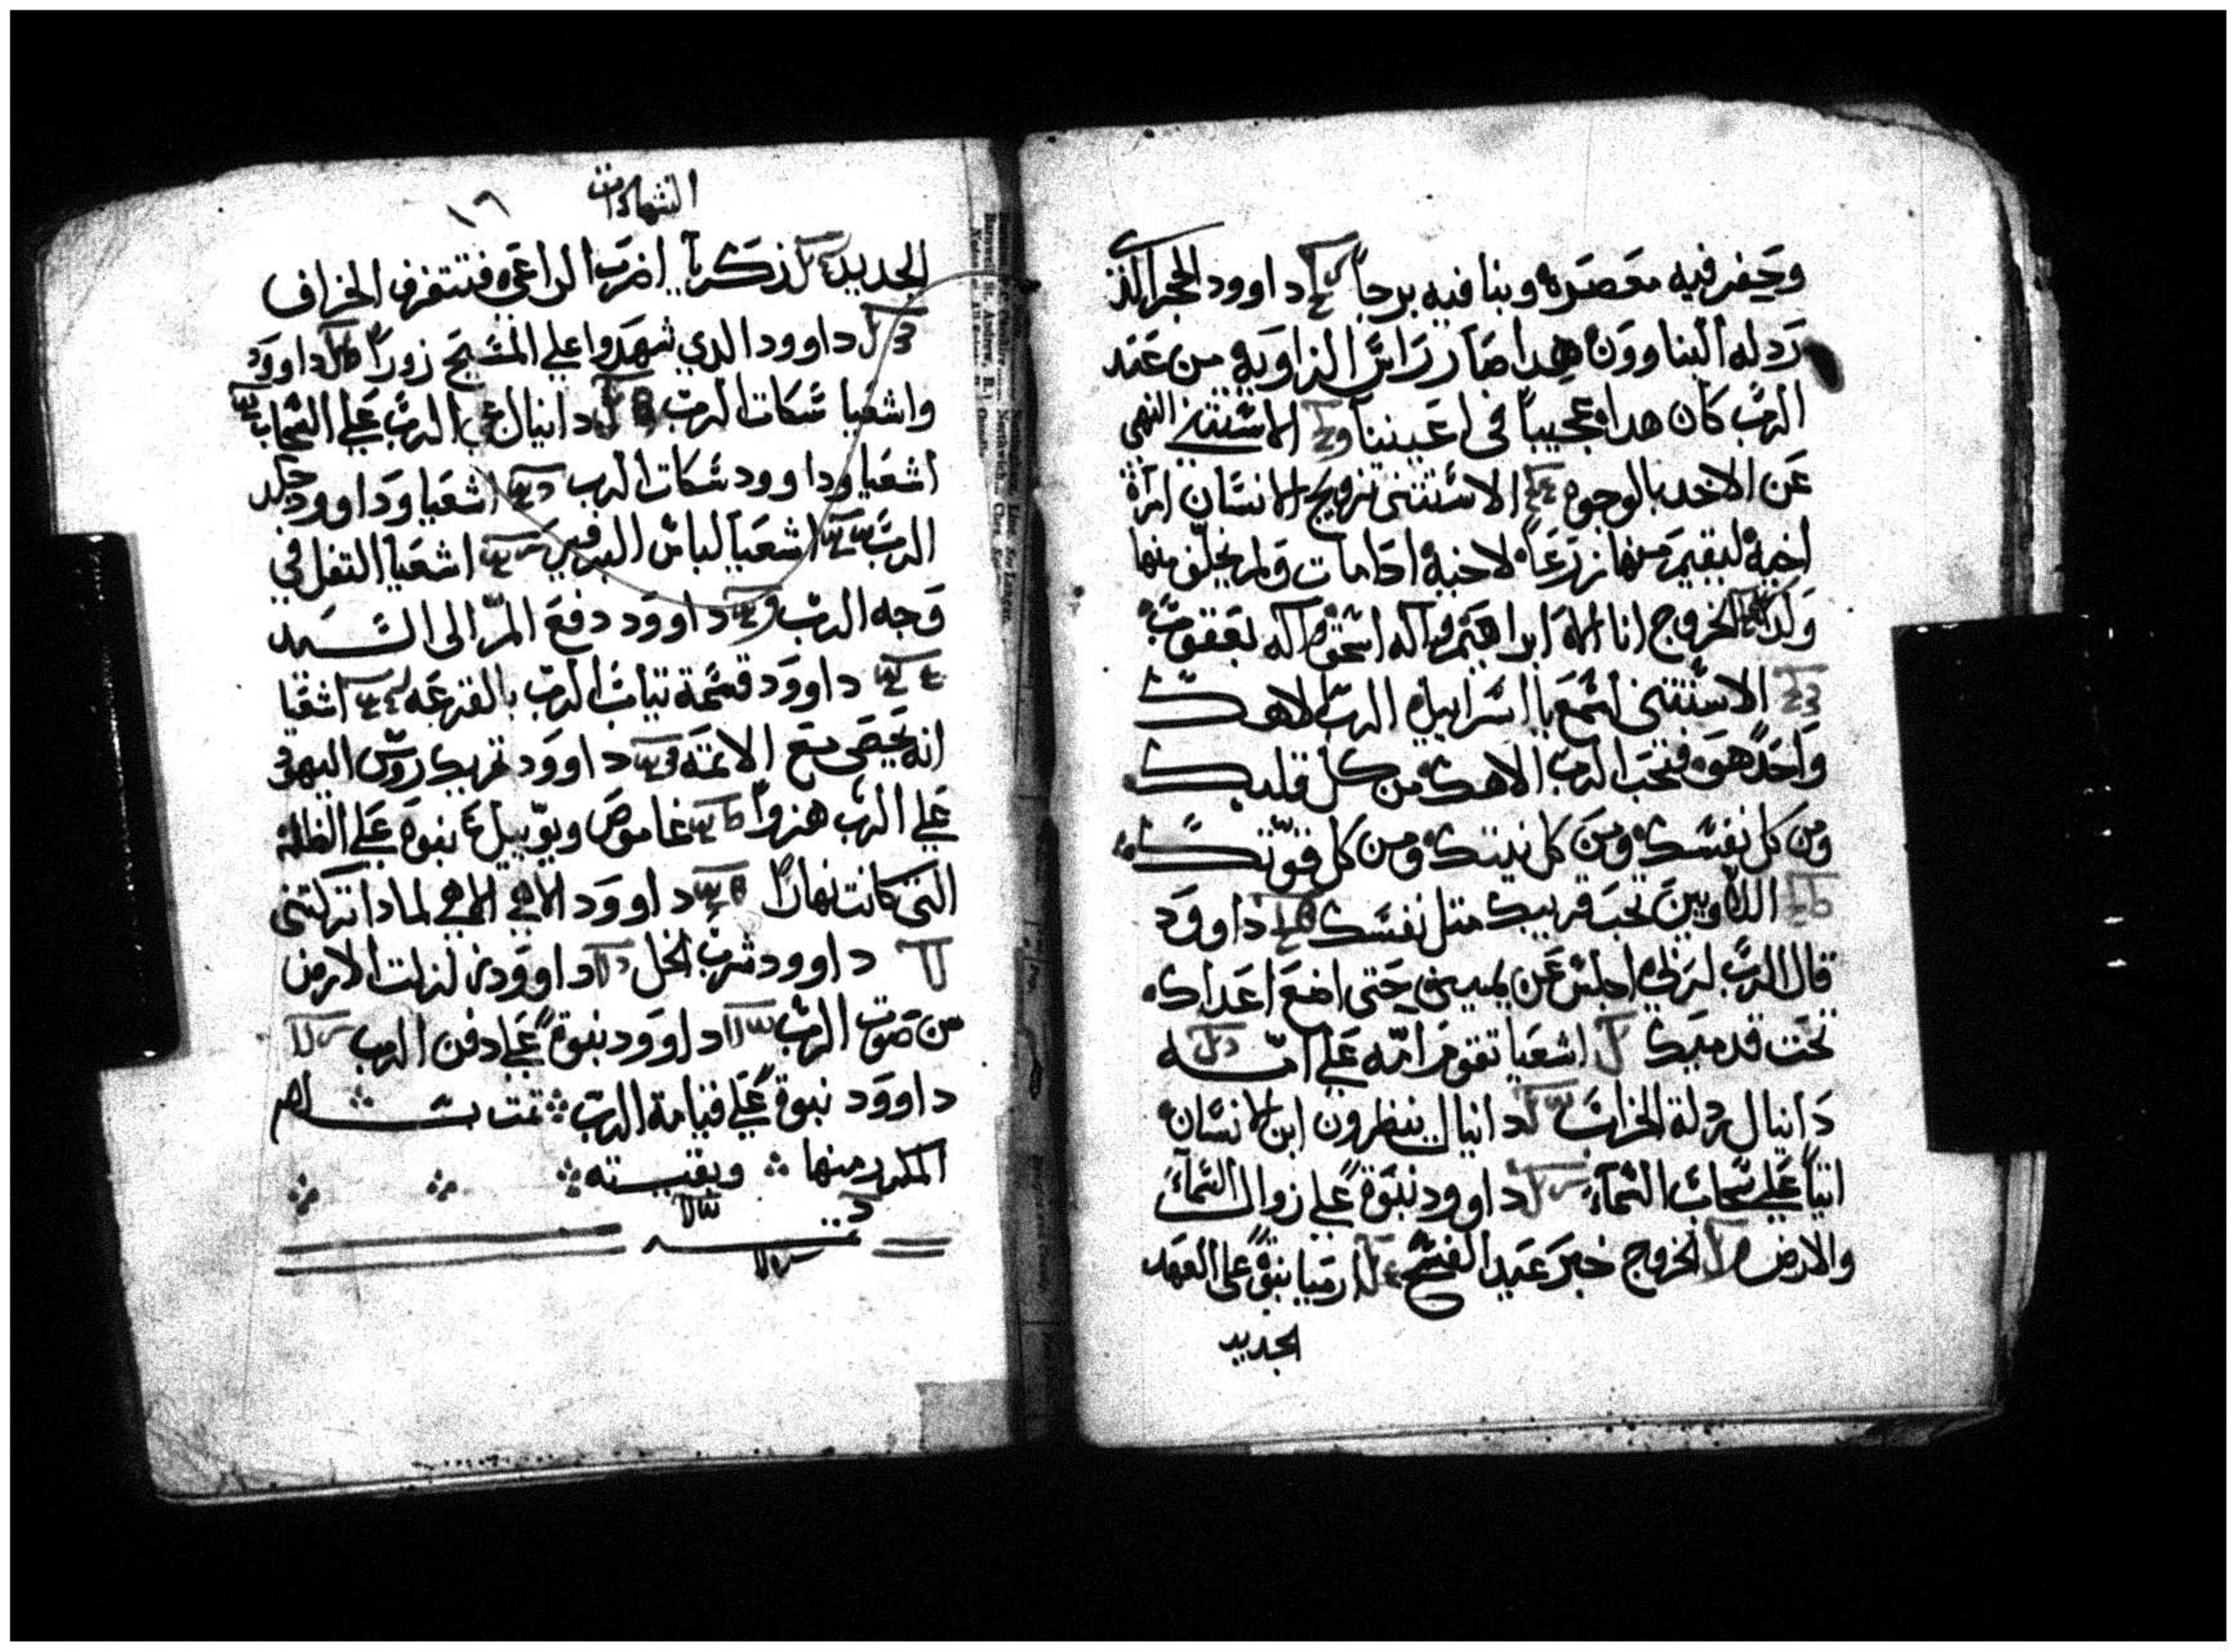 وحفر فيه معصره وبنا فيه برجاً داوود الحجر الذي
رذله البناوون هدا صار راس الزاويه من عند
الرب كان هدا عجيباً في اعيننا الاستثنى النهي
عن الاخد بالوجوه الاستثنى تزويج الانسان امراة
اخيه ليقيم منها زرعاً لاخيه ادا مات ولم يخلف منها
ولد الخروج انا اله ابراهيم واله اسحق واله يعقوب
الاستثنى اسمع يا اسراييل الرب الاهك
واحد هو فتحب الرب الاهك من كل قلبك
ومن كل نفسك ومن كل نيتك ومن كل قوتك
اللاويين تحب قريبك متل نفسك داوود
قال الرب لربي اجلس عن يميني حتى اضع اعداك
تحت قدميك اشعيا تقوم امه على امه
دانيال ردلة الخراب دانيال ينظرون ابن الانسان
اتياً على سحاب السماء داوود نبوة على زوال السماء
والارض الخروج خبر عيد الفسح ارميا نبوة على العهد
الجديد
الشهادات
١٦
الجديد زكريا اضرب الراعي فتتفرق الخراف
داوود الدي شهدوا على المسيح زوراً داوود
واشعيا سكات الرب دانيال مجي الرب على السحاب
اشعيا وداوود سكات الرب اشعيا وداوود جلد
الرب اشعيا لباس البرفير اشعيا التفل في
وجه الرب داوود دفع المر الى السيد
داوود قسمة تياب الرب بالقرعه اشعيا
انه يحصى مع الاتمه داوود تحريك روس اليهود
على الرب هزواً عاموص ويوييل نبوة على الظلمة
التى كانت نهاراً داوود الاهي الاهي لمادا تركتني
داوود شرب الخل داوود تزلزلت الارض
من صوت الرب داوود نبوة على دفن الرب
داوود نبوة على قيامة الرب تمت بسلام
المكرر منها وبقيته